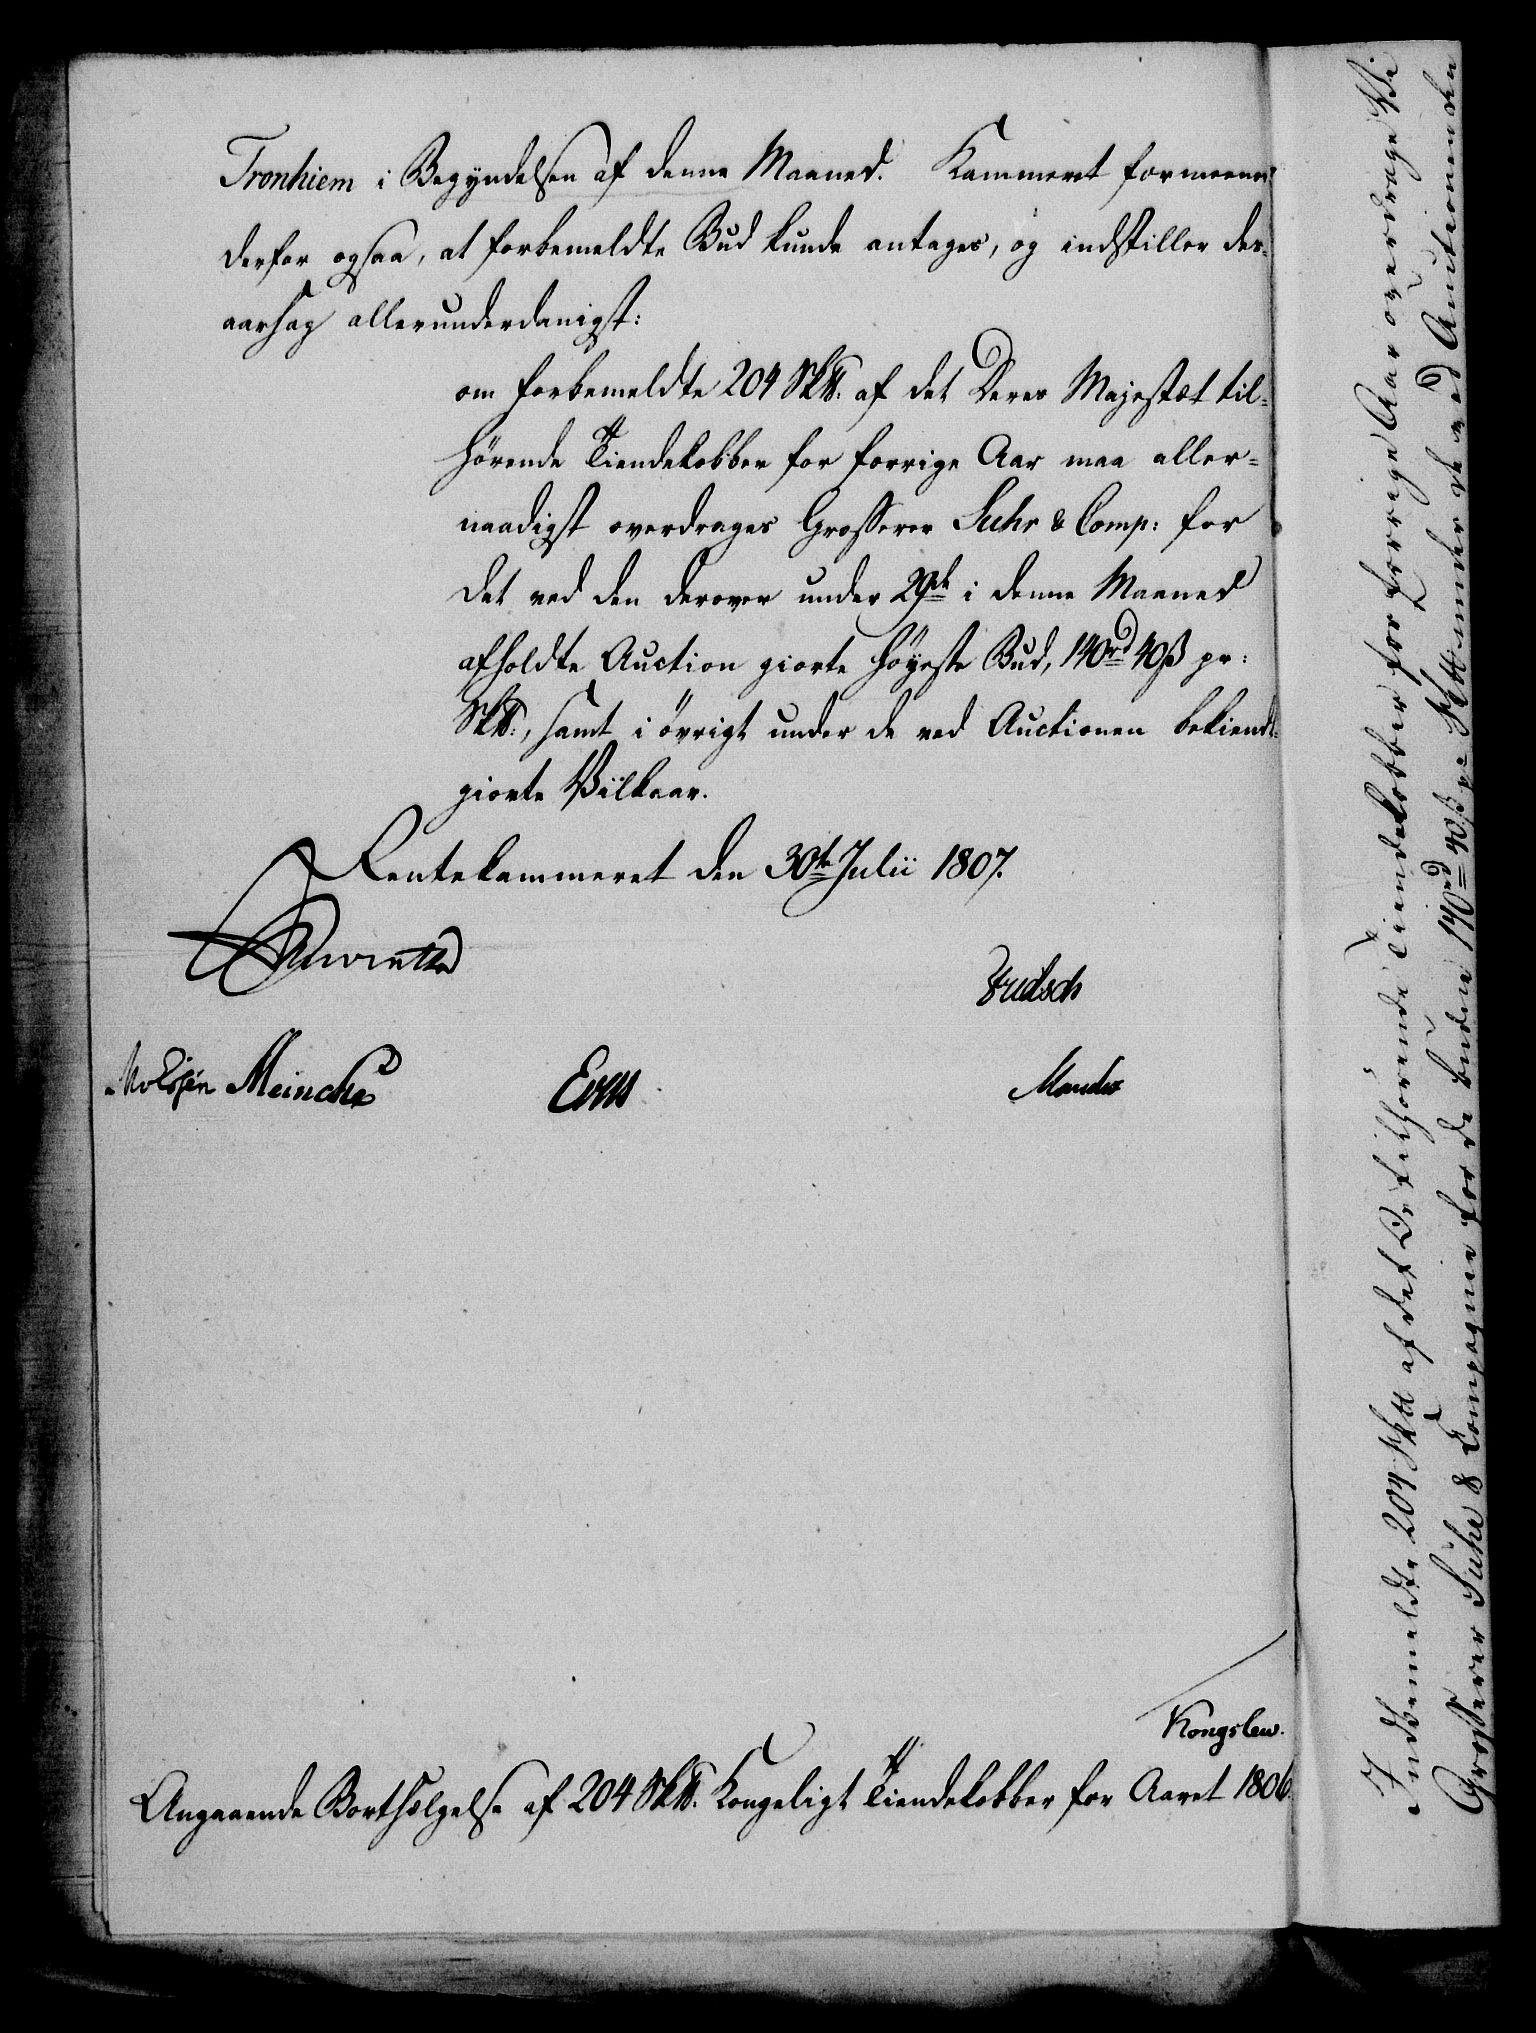 Tronhiem i Begyndelsen af denne Maaned. Kammeret formeener
derfor ogsaa, at forbemeldte Bud kunde antages, og indstiller des-
aarsag allerunderdanigst:
om forbemeldte 204 Sk℔: af det Deres Majestæt til-
hörende Tiendekobber for forrige Aar maa aller-
naadigst overdrages Grosserer Suhr & Comp: for
det ved den derover under 29de i denne Maaned
afholdte Auction giorte höyeste Bud, 140rd 40ß pr:
Sk℔:, samt i övrigt under de ved Auctionen bekiendt-
giorte Vilkaar.
Rentekammeret den 30te Julii 1807.
Meincke
Kongslew.
Angaaende Bortsælgelse af 204 Sk℔. Kongeligt Tiendekobber for Aaret 1806.
Indbemeldte 204 Sk℔ af det Os tilhörende Tiendekobber for forrige Aar overdrage Vi
Grosserer Suhr & Compagnie for de budne 140rd 40ß pr Sk℔ under de ved Auctionen den